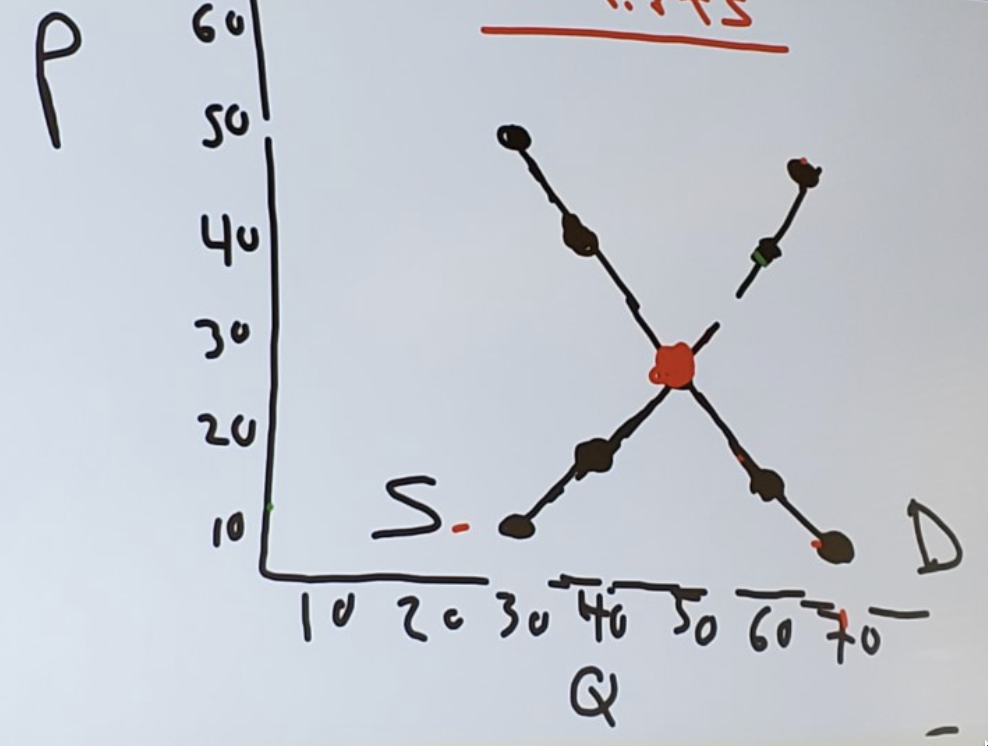 60
P
50
40
30
20
10
S.
D
10 20 30 40 50 60 70
Q